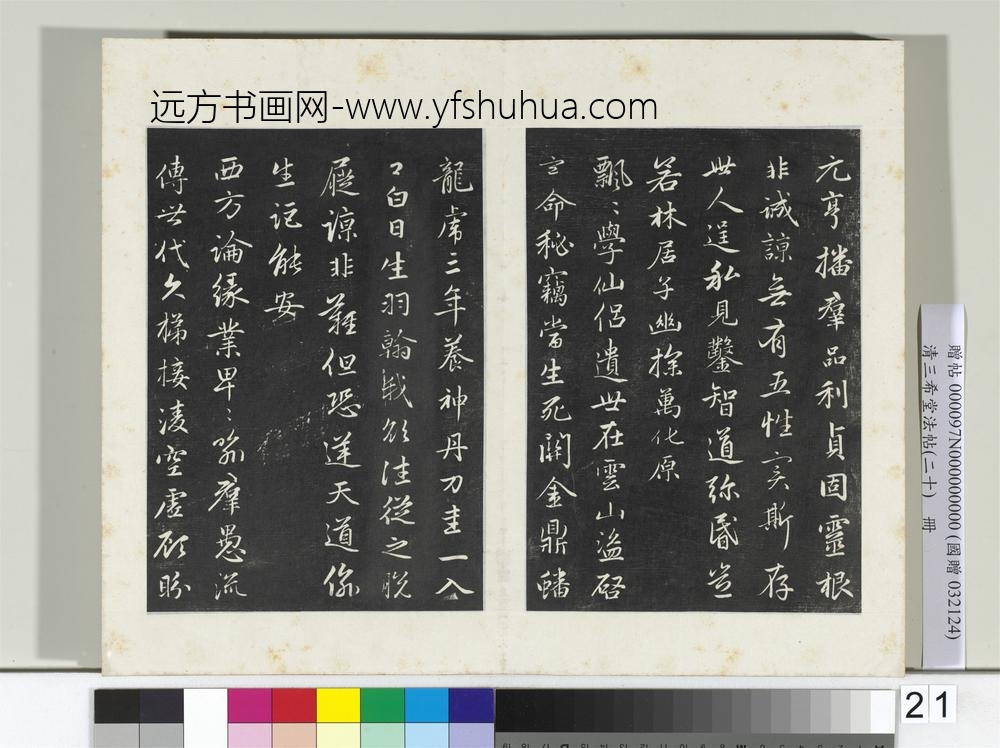 远方书画网-www.yfshuhua.com
元亨播羣品利貞固靈根
非誠諒無有五性實斯存
世人逞私見鑿智道弥昏豈
若林居子幽探萬化原
飄〻學仙侶遺世在雲山盜啓
命秘竊當生死關金鼎蟠
龍虎三年養神丹刀圭一入
口白日生羽翰我欲往從之脫
屣諒非難但恐逆天道偷
生詎能安
西方論緣業卑〻喻羣愚流
傳世代久梯接凌空虛顧盼
贈帖 000097N000000000 (國贈 032124)
清三希堂法帖(二十) 冊
21